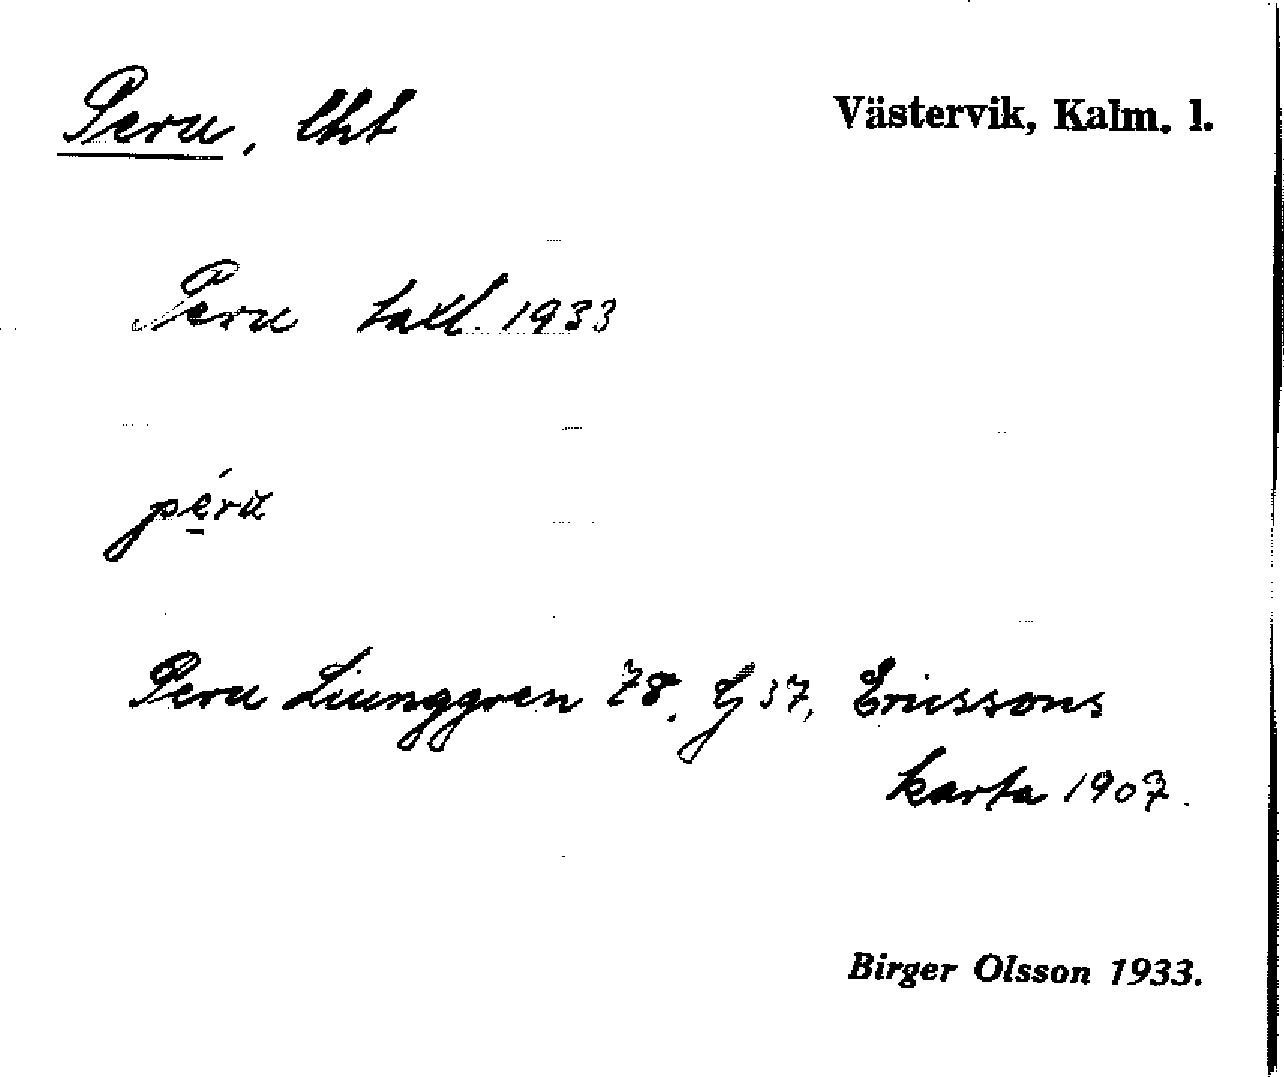 Peru, lht
Västervik, Kalm. l.
Peru takl. 1933
péru
Peru Ljunggren 78. G 37, Ericssons
karta 1907.
Birger Olsson 1933.